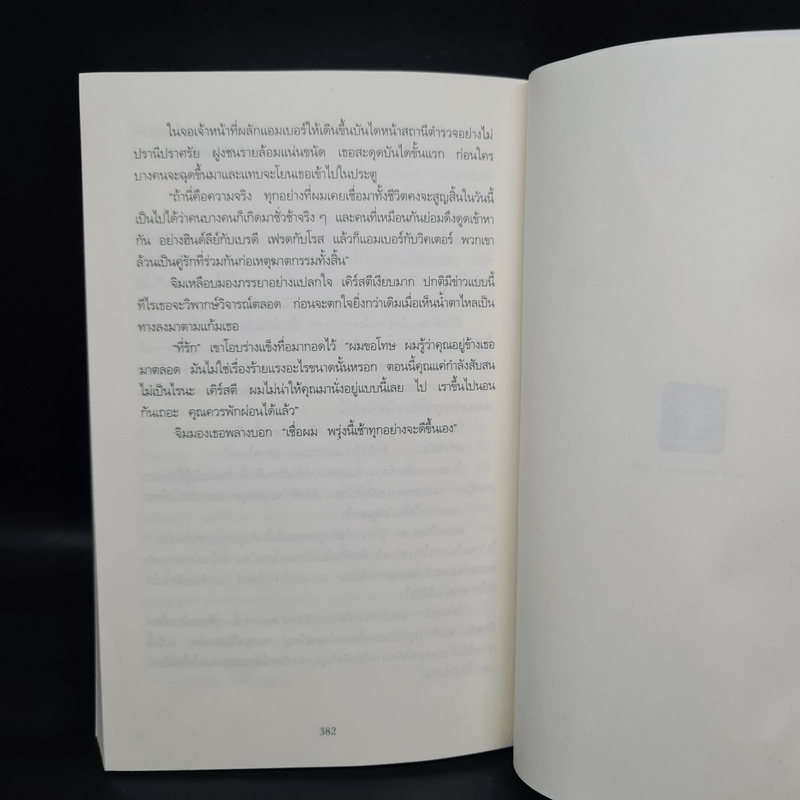 ในจอเจ้าหน้าที่ผลักแอมเบอร์ให้เดินขึ้นบันไดหน้าสถานีตำรวจอย่างไม่
ปรานีปราศรัย ฝูงชนรายล้อมแน่นขนัด เธอสะดุดบันไดขั้นแรก ก่อนใคร
บางคนจะฉุดขึ้นมาและแทบจะโยนเธอเข้าไปในประตู
"ถ้านี่คือความจริง ทุกอย่างที่ผมเคยเชื่อมาทั้งชีวิตคงจะสูญสิ้นในวันนี้
เป็นไปได้ว่าคนบางคนก็เกิดมาชั่วช้าจริง ๆ และคนที่เหมือนกันย่อมดึงดูดเข้าหา
กัน อย่างฮินด์ลีย์กับเบรดี เฟรดกับโรส แล้วก็แอมเบอร์กับวิคเตอร์ พวกเขา
ล้วนเป็นคู่รักที่ร่วมกันก่อเหตุฆาตกรรมทั้งสิ้น"
จิมเหลือบมองภรรยาอย่างแปลกใจ เคิร์สตีเงียบมาก ปกติมีข่าวแบบนี้
ทีไรเธอจะวิพากษ์วิจารณ์ตลอด ก่อนจะตกใจยิ่งกว่าเดิมเมื่อเห็นน้ำตาไหลเป็น
ทางลงมาตามแก้มเธอ
"ที่รัก" เขาโอบร่างแข็งทื่อมากอดไว้ "ผมขอโทษ ผมรู้ว่าคุณอยู่ข้างเธอ
มาตลอด มันไม่ใช่เรื่องร้ายแรงอะไรขนาดนั้นหรอก ตอนนี้คุณแค่กำลังสับสน
ไม่เป็นไรนะ เคิร์สตี ผมไม่น่าให้คุณมานั่งอยู่แบบนี้เลย ไป เราขึ้นไปนอน
กันเถอะ คุณควรพักผ่อนได้แล้ว"
จิมมองเธอพลางบอก "เชื่อผม พรุ่งนี้เช้าทุกอย่างจะดีขึ้นเอง"
382